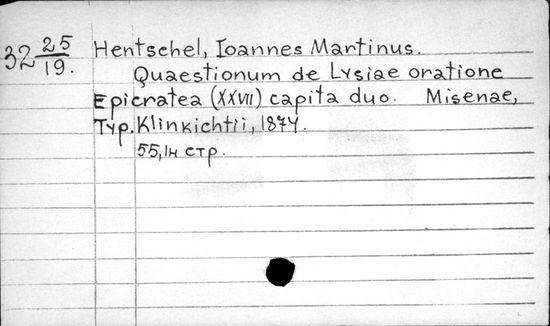 32 25/19. Hentschel, Ioannes Martinus.
Quaestionum de Lysiae oratione
Epicratea (XXVII) capita duo. Misenae,
Typ. Klinkichtii, 1874.
55, IH стр.